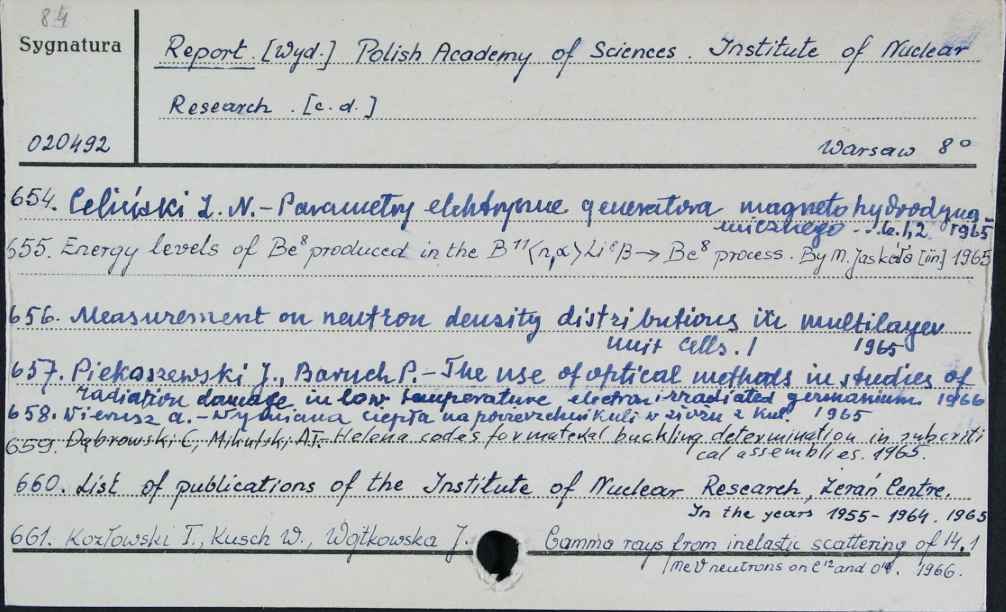 84
Sygnatura
Report. [Wyd.] Polish Academy of Sciences. Institute of Nuclear
Research. [c.d.]
020492
Warsaw 8°
654. Celiński Z. N. - Parametry elektryczne generatora magnetohydrodyna
micznego ... 1965
655. Energy levels of Be⁸ produced in the B¹¹⟨n,α⟩Li⁸β→Be⁸ process. By M. Jaskóła [in] 1965
656. Measurement on neutron density distributions in multilayer
unit cells. 1 1965
657. Piekaszewski J., Baruch P. - The use of optical methods in studies of
radiation damage in low temperature electron irradiated germanium. 1966
658. Wierusz A. - Wymiana ciepła na powierzchni kuli w złożu z kul. 1965
659. Dąbrowski C, Mikulski AT. - Helena codes for material buckling determination in subcriti
cal assemblies. 1965.
660. List of publications of the Institute of Nuclear Research, Żerań Centre.
In the years 1955-1964. 1965
661. Kozłowski T., Kusch W., Wojtkowska J. Gamma rays from inelastic scattering of 14,1
MeV neutrons on C¹² and O¹⁶. 1966.